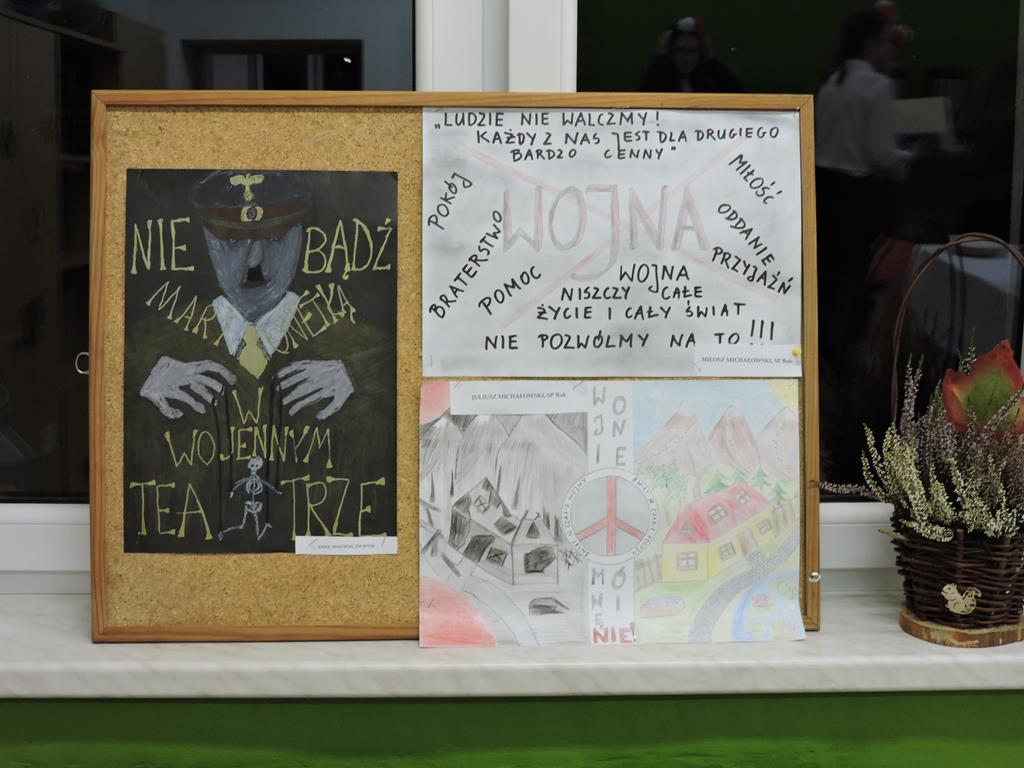 NIE BĄDŹ
MARIONETKĄ
W
WOJENNYM
TEATRZE
„LUDZIE NIE WALCZMY!
KAŻDY Z NAS JEST DLA DRUGIEGO
BARDZO CENNY"
POKÓJ
BRATERSTWO
POMOC
WOJNA
MIŁOŚĆ
ODDANIE
PRZYJAŹŃ
WOJNA
NISZCZY CAŁE
ŻYCIE I CAŁY ŚWIAT
NIE POZWÓLMY NA TO!!!
MIŁOSZ MICHAŁOWSKI, SP Buk
JULIUSZ MICHAŁOWSKI, SP Buk
WOJNIE
MÓWIĘ
NIE!